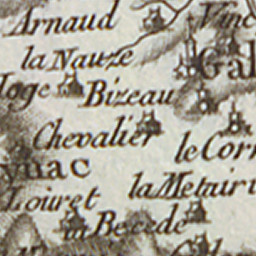 Arnaud
Vinc
la Nauze
Gal
loge
Bizeau
Chevalier
le Corn
ynac
Louret
la Metairi
la Becede